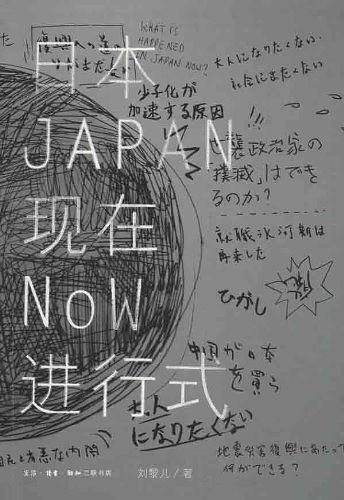 た
WHAT IS
HAPPENED
IN JAPAN NOW?
大人になりたくない.
社会に出たくない
日本
少子化が
加速する原因
!!!
JAPAN
世襲政治家の
「撲滅」はでき
るのか?
现在
就職氷河期は
再来した
NOW
ひがし
中国が日本
を買う
进行式
大人
になりたくない
地震災害復興にあたって
何ができる?
生活·讀書·新知三联书店
刘黎儿/著